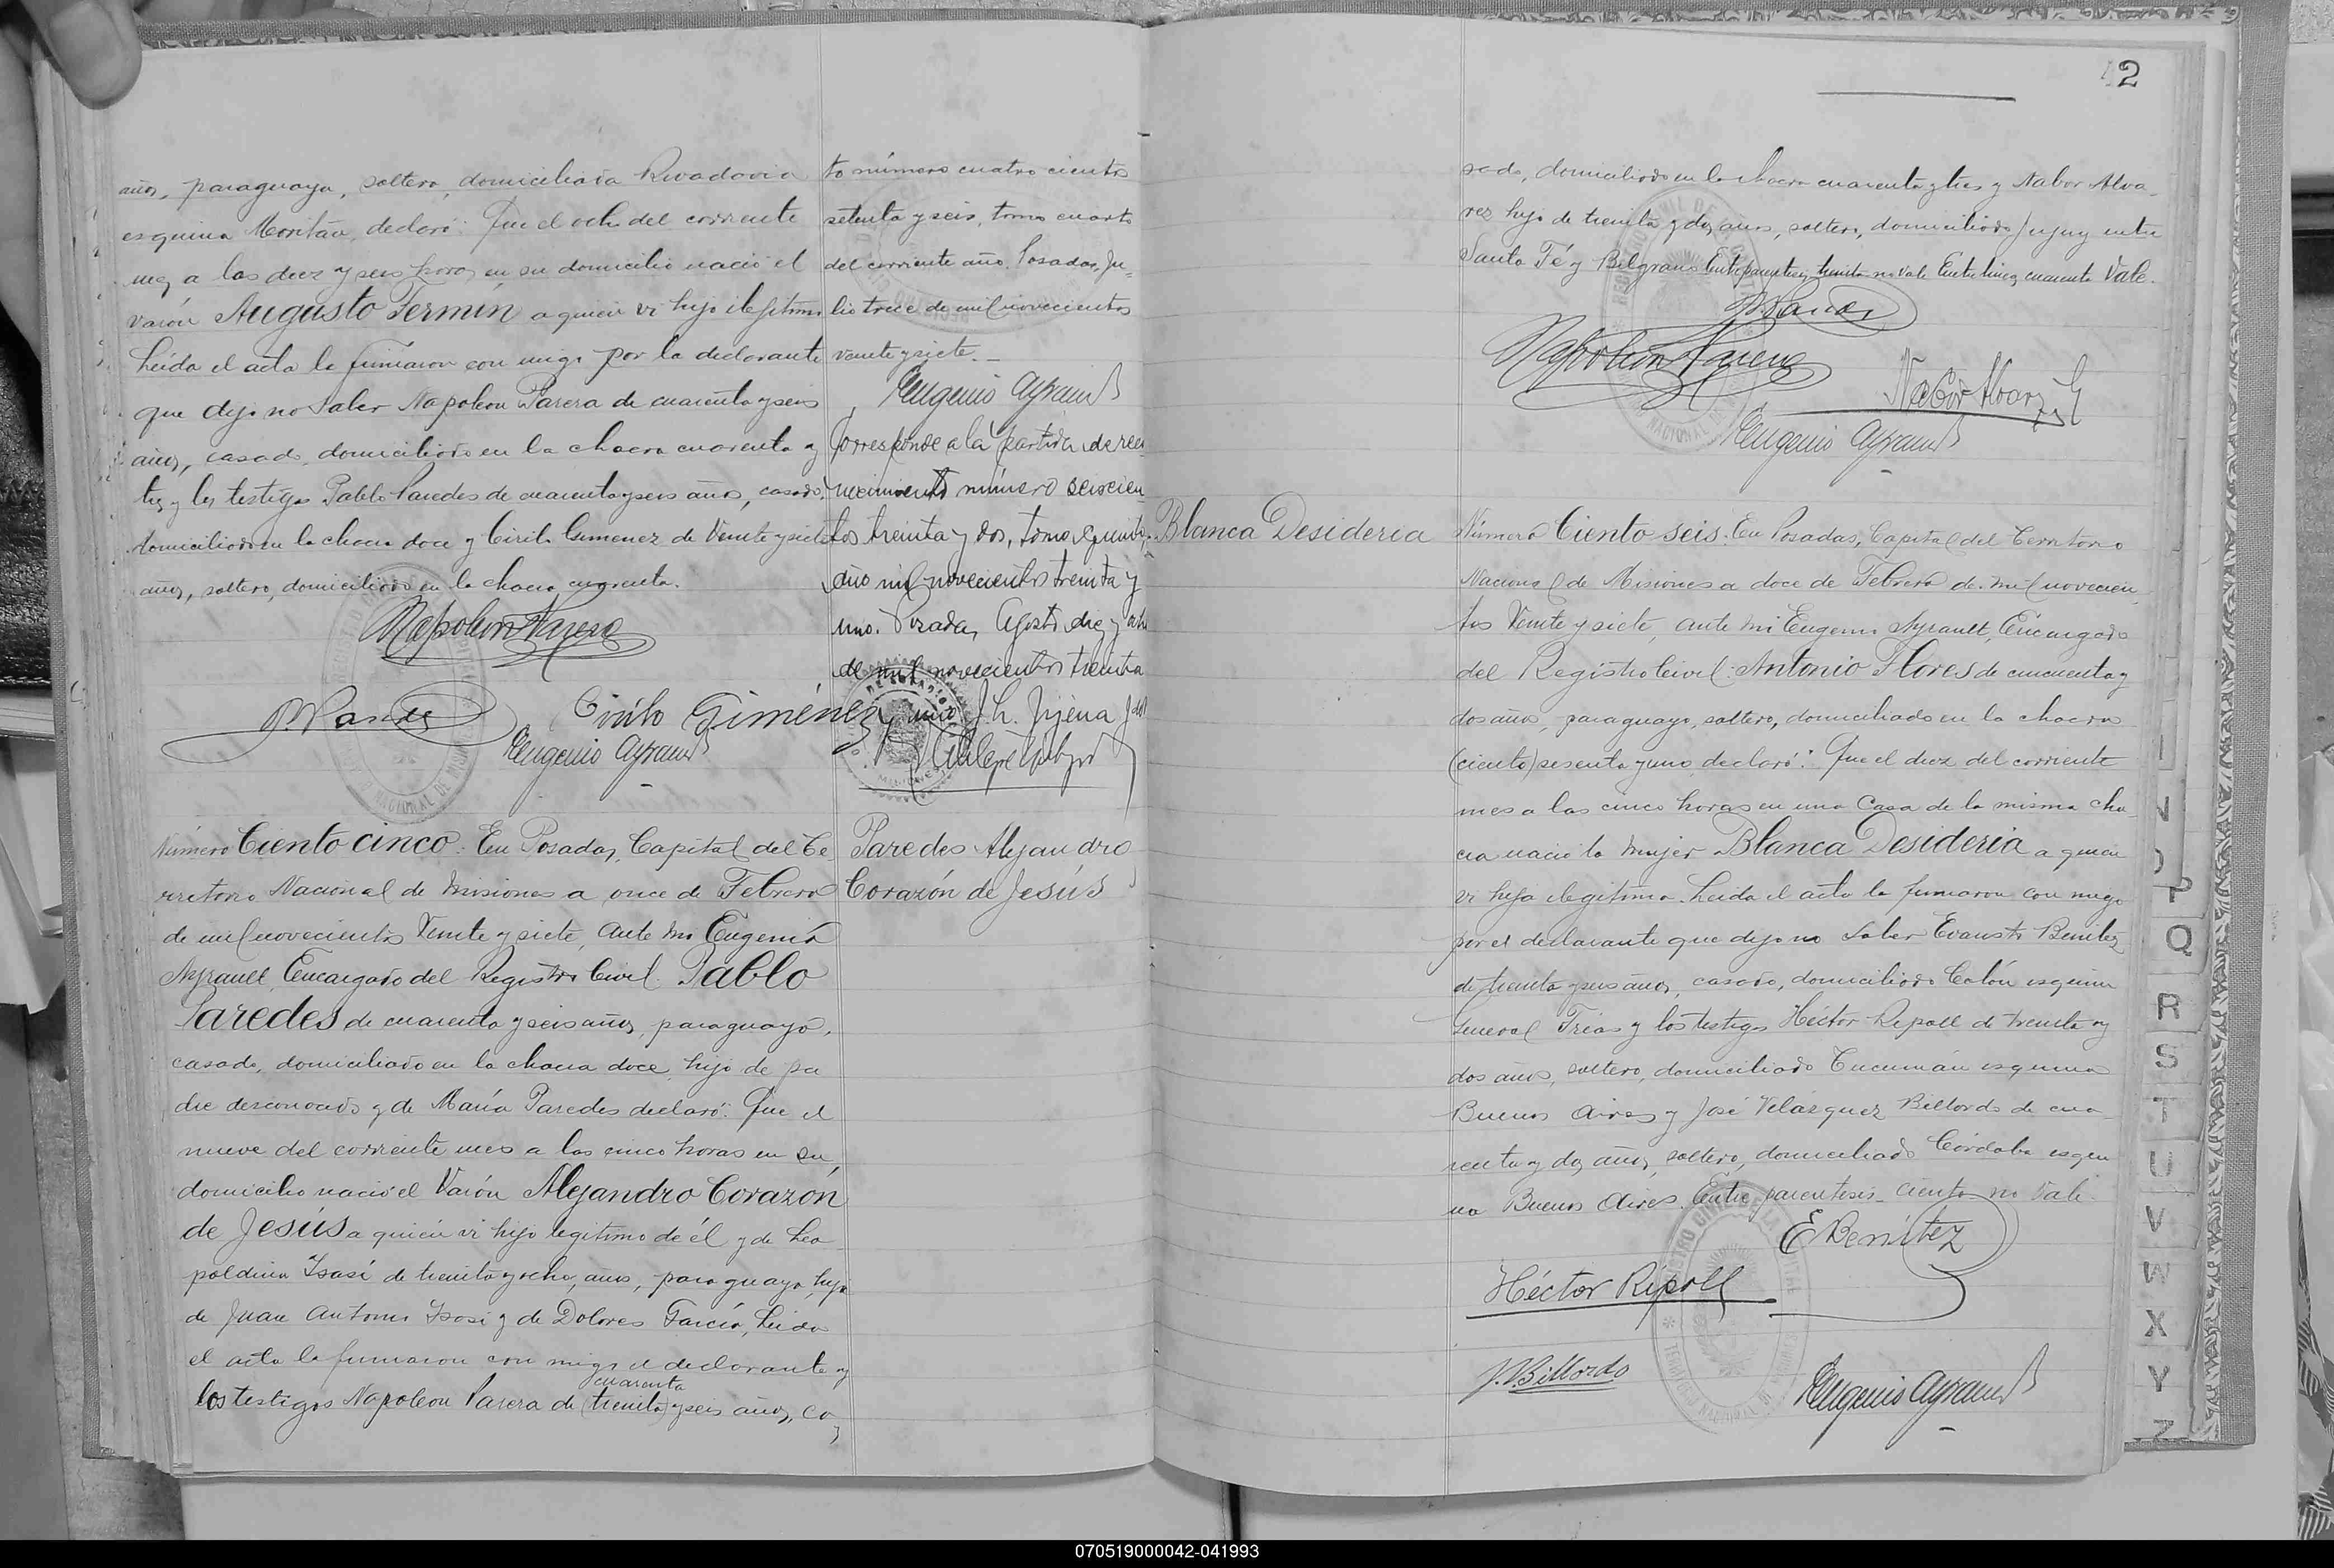 años, paraguaya, soltera, domiciliada Rivadavia
esquina declaró: Que el ocho del corriente
mes, a las diez y seis horas, en su domicilio nació el
varón Augusto Fermín a quien vi hijo ilegítimo
Leída el acta la firmaron con migo por la declarante
que dijo no saber Napoleon Parera de cuarenta y seis
años, casado, domiciliado en la chacra cuarenta y
tres y los testigos Pablo Paredes de cuarenta y seis años, casado,
domiciliado en la chacra doce y Cirilo Gimenez de Veinte y siete
años, soltero, domiciliado en la chacra cuarenta.
Napoleon Parera
P. Paredes
Cirilo Giménez
Eugenio Ayrault
to número cuatro cientos
setenta y seis, tomo cuarto
del corriente año. Posadas, Ju-
lio trece de mil novecientos
veinte y siete.-
Eugenio Ayrault
Corresponde a la partida de reco-
nocimiento número seiscien-
tos treinta y dos, tomo quinto,
año mil novecientos treinta y
uno. Posadas, Agosto diez y ocho
de mil novecientos treinta
y uno
Número Ciento cinco: En Posadas, Capital del Te-
rritorio Nacional de Misiones a once de Febrero
de mil novecientos Veinte y siete, ante mi Eugenio
Ayrault, Encargado del Registro Civil: Pablo
Paredes de cuarenta y seis años, paraguayo,
casado, domiciliado en la chacra doce, hijo de pa
dre desconocido y de María Paredes declaró: Que el
nueve del corriente mes a las cinco horas en su
domicilio nació el Varón Alejandro Corazón
de Jesús a quién vi hijo legítimo de él y de Leo-
poldina Isasi de treinta y ocho, años, paraguaya, hija
de Juan Antonio Isasi y de Dolores García, Leida
el acta la firmaron con migo el declarante y
cuarenta
los testigos Napoleon Parera de (treinta) y seis años, ca-
Paredes Alejandro
Corazón de Jesús
42
sado, domiciliado en la chacra cuarenta y tres y Nabor Alva-
rez hijo de treinta y dos años, soltero, domiciliado Jujuy entre
Santa Fé y Belgrano Entre parentesis treinta no vale Entre lineas cuarenta Vale.
P. Paredes
Napoleón Parera
Nabor Alvarez
Eugenio Ayrault
Blanca Desideria
Número Ciento seis: En Posadas, Capital del Territorio
Nacional de Misiones a doce de Febrero de mil novecien
tos Veinte y siete, ante mi Eugenio Ayrault, Encargado
del Registro Civil: Antonio Flores de cincuenta y
dos años, paraguayo, soltero, domiciliado en la chacra
(ciento) sesenta y uno, declaró: Que el diez del corriente
mes a las cinco horas en una Casa de la misma cha-
cra nació la mujer Blanca Desideria a quien
vi hija ilegítima. Leida el acta la firmaron con migo
por el declarante que dijo no saber Evaristo Benitez
de treinta y seis años, casado, domiciliado Colón esquina
General Frías y los testigos Héctor Ripoll de treinta y
dos años, soltero, domiciliado Tucumán esquina
Buenos Aires y José Velázquez Billordo de cua-
renta y dos años, soltero, domiciliado Córdoba esqui
na Buenos Aires. Entre parentesis-ciento no Vale.
E Benítez
Héctor Ripoll
J. V. Billordo
Eugenio Ayrault
N
P
Q
R
S
T
U
V
W
X
Y
Z
070519000042-041993